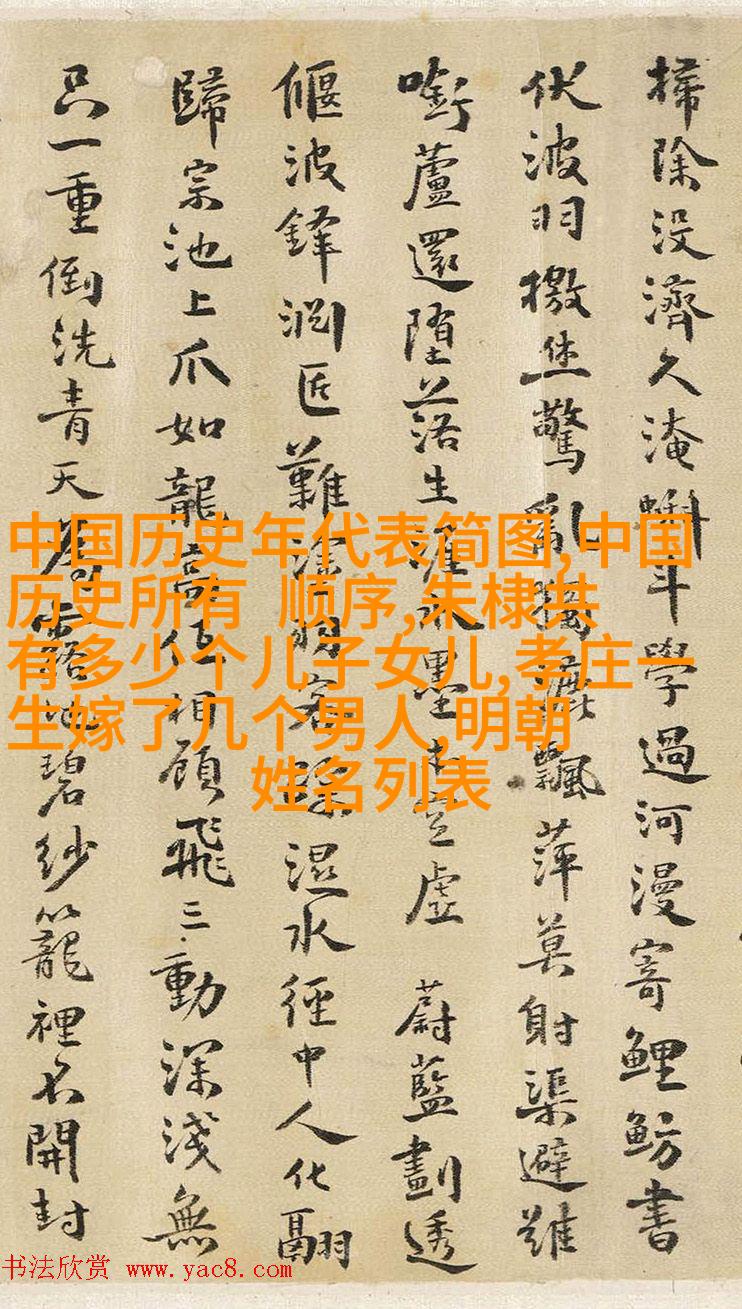 掃除没濟久淹蝌斗學過河漫寄鯉魴書
伏波羽檄坐驚亂飄萍莫射渠避難
銜蘆還墮落生涯水墨未空虚 蔚藍劃透
偃波鋒淵匠難湿水經中人化翮
歸宗池上爪如龍相顧飛三動深淺無
只一重倒洗青天碧紗籠裡不開封
中国历史年代表简图,中国
历史所有 顺序,朱棣共
有多少个儿子女儿,孝庄一
生嫁了几个男人,明朝
姓名列表
书法欣赏 www.yac8.com